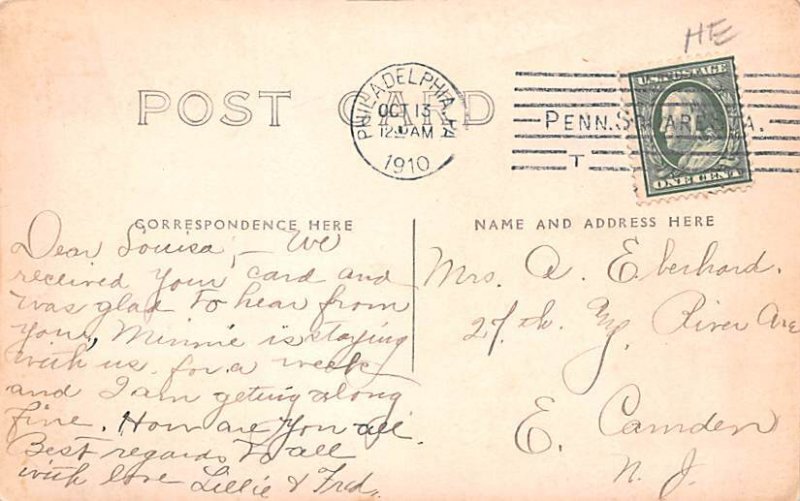 HE
POST CARD
PHILADELPHIA, PA
OCT 13
12 AM
1910
PENN. SQUARE STA.
T
U.S. POSTAGE
ONE CENT
CORRESPONDENCE HERE
NAME AND ADDRESS HERE
Dear Louisa, – We
received your card and
was glad to hear from
you, Minnie is staying
with us for a week
and I am geting along
fine. How are you all.
Best regards to all
with love Lillie & Fred.
Mrs. A. Eberhard.
27th & River Ave
E. Camden
N. J.